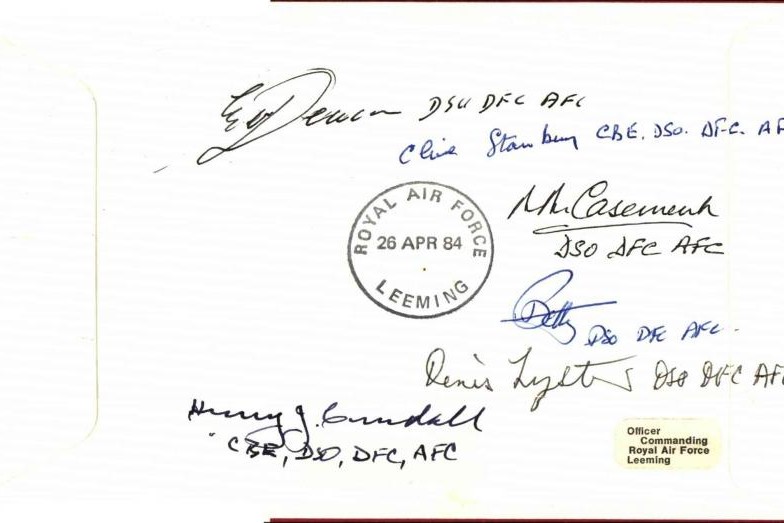 DSO DFC AFC
Clive Stanbury CBE. DSO. DFC. AF
ROYAL AIR FORCE
26 APR 84
LEEMING
Casement
DSO DFC AFC
DSO DFC AFC.
Denis DSO DFC AF
Henry J. Cundall
CBE, DSO, DFC, AFC
Officer
Commanding
Royal Air Force
Leeming